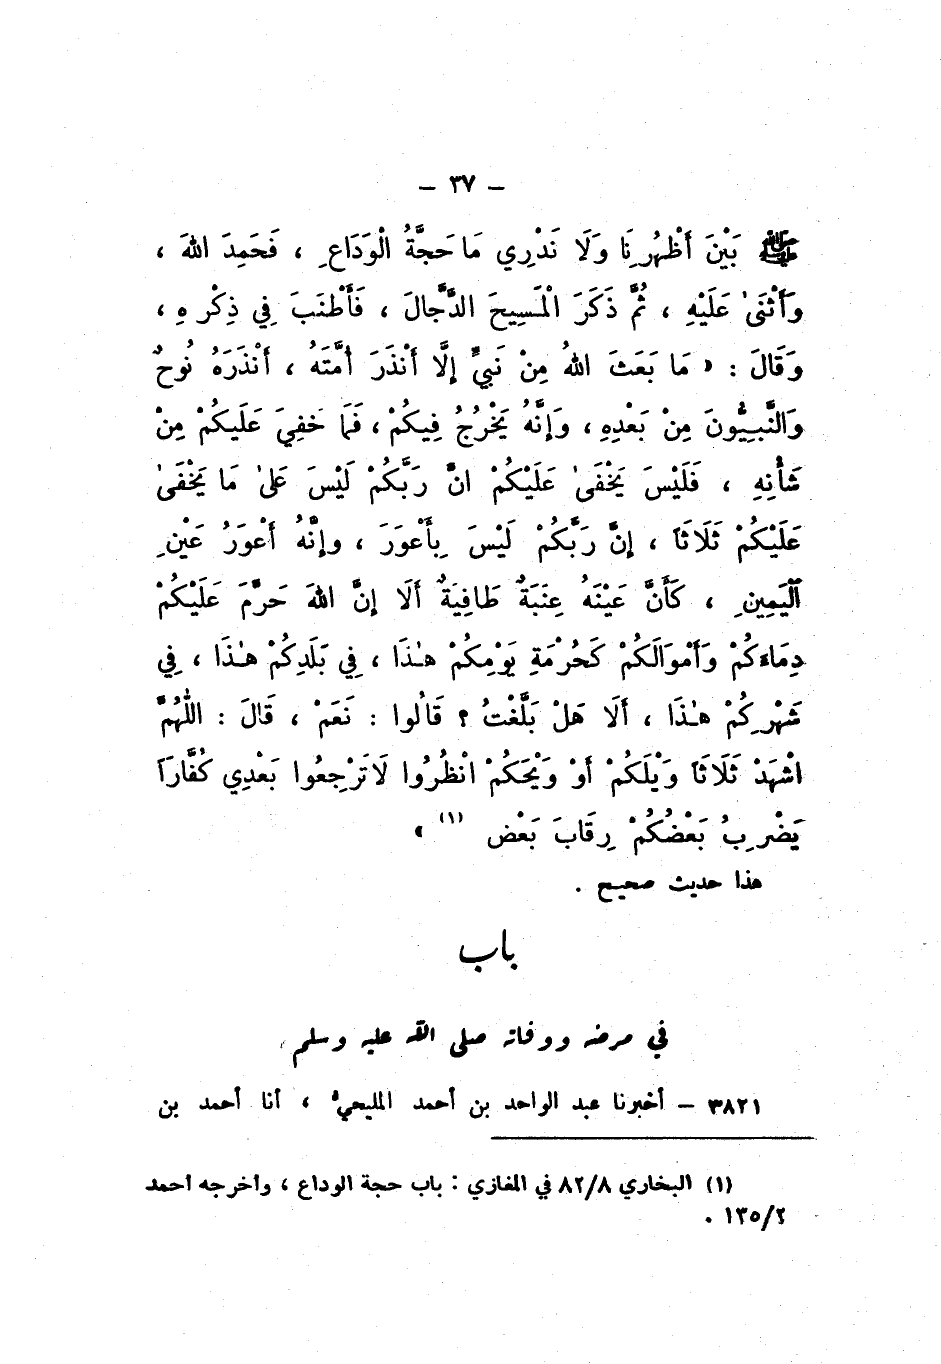 – ٣٧ –
ﷺ بَيْنَ أَظْهُرِنَا وَلَا نَدْرِي مَا حَجَّةُ الْوَدَاعِ ، فَحَمِدَ اللهَ ،
وَأَثْنَىٰ عَلَيْهِ ، ثُمَّ ذَكَرَ الْمَسِيحَ الدَّجَّالَ ، فَأَطْنَبَ فِي ذِكْرِهِ ،
وَقَالَ : « مَا بَعَثَ اللهُ مِنْ نَبِيٍّ إِلَّا أَنْذَرَ أُمَّتَهُ ، أَنْذَرَهُ نُوحٌ
وَالنَّبِيُّونَ مِنْ بَعْدِهِ ، وَإِنَّهُ يَخْرُجُ فِيكُمْ ، فَمَا خَفِيَ عَلَيكُمْ مِنْ
شَأْنِهِ ، فَلَيْسَ يَخْفَىٰ عَلَيْكُمْ انَّ رَبَّكُمْ لَيْسَ عَلىٰ مَا يَخْفَىٰ
عَلَيْكُمْ ثَلَاثَاً ، إِنَّ رَبَّكُمْ لَيْسَ بِأَعْوَرَ ، وإِنَّهُ أَعْوَرُ عَيْنِ
الْيَمِينِ ، كَأَنَّ عَيْنَهُ عِنَبَةٌ طَافِيَةٌ أَلَا إِنَّ اللهَ حَرَّمَ عَلَيْكُمْ
دِمَاءَكُمْ وَأَمْوَالَكُمْ كَحُرْمَةِ يَوْمِكُمْ هٰذَا ، فِي بَلَدِكُمْ هٰذَا ، فِي
شَهْرِكُمْ هٰذَا ، أَلَا هَلْ بَلَّغْتُ ؟ قَالُوا : نَعَمْ ، قَالَ : اللّٰهُمَّ
اشْهَدْ ثَلَاثَاً وَيْلَكُمْ أَوْ وَيْحَكُمْ انْظُرُوا لَا تَرْجِعُوا بَعْدِي كُفَّارَاً
يَضْرِبُ بَعْضُكُمْ رِقَابَ بَعْضٍ (١) »
هذا حديث صحيح .
باب
في مرضه ووفاته صلى الله عليه وسلم
٣٨٢١ – أخبرنا عبد الواحد بن أحمد المليحيُّ ، أنا أحمد بن
(١) البخاري ٨٢/٨ في المغازي : باب حجة الوداع ، وأخرجه أحمد
١٣٥/٢ .